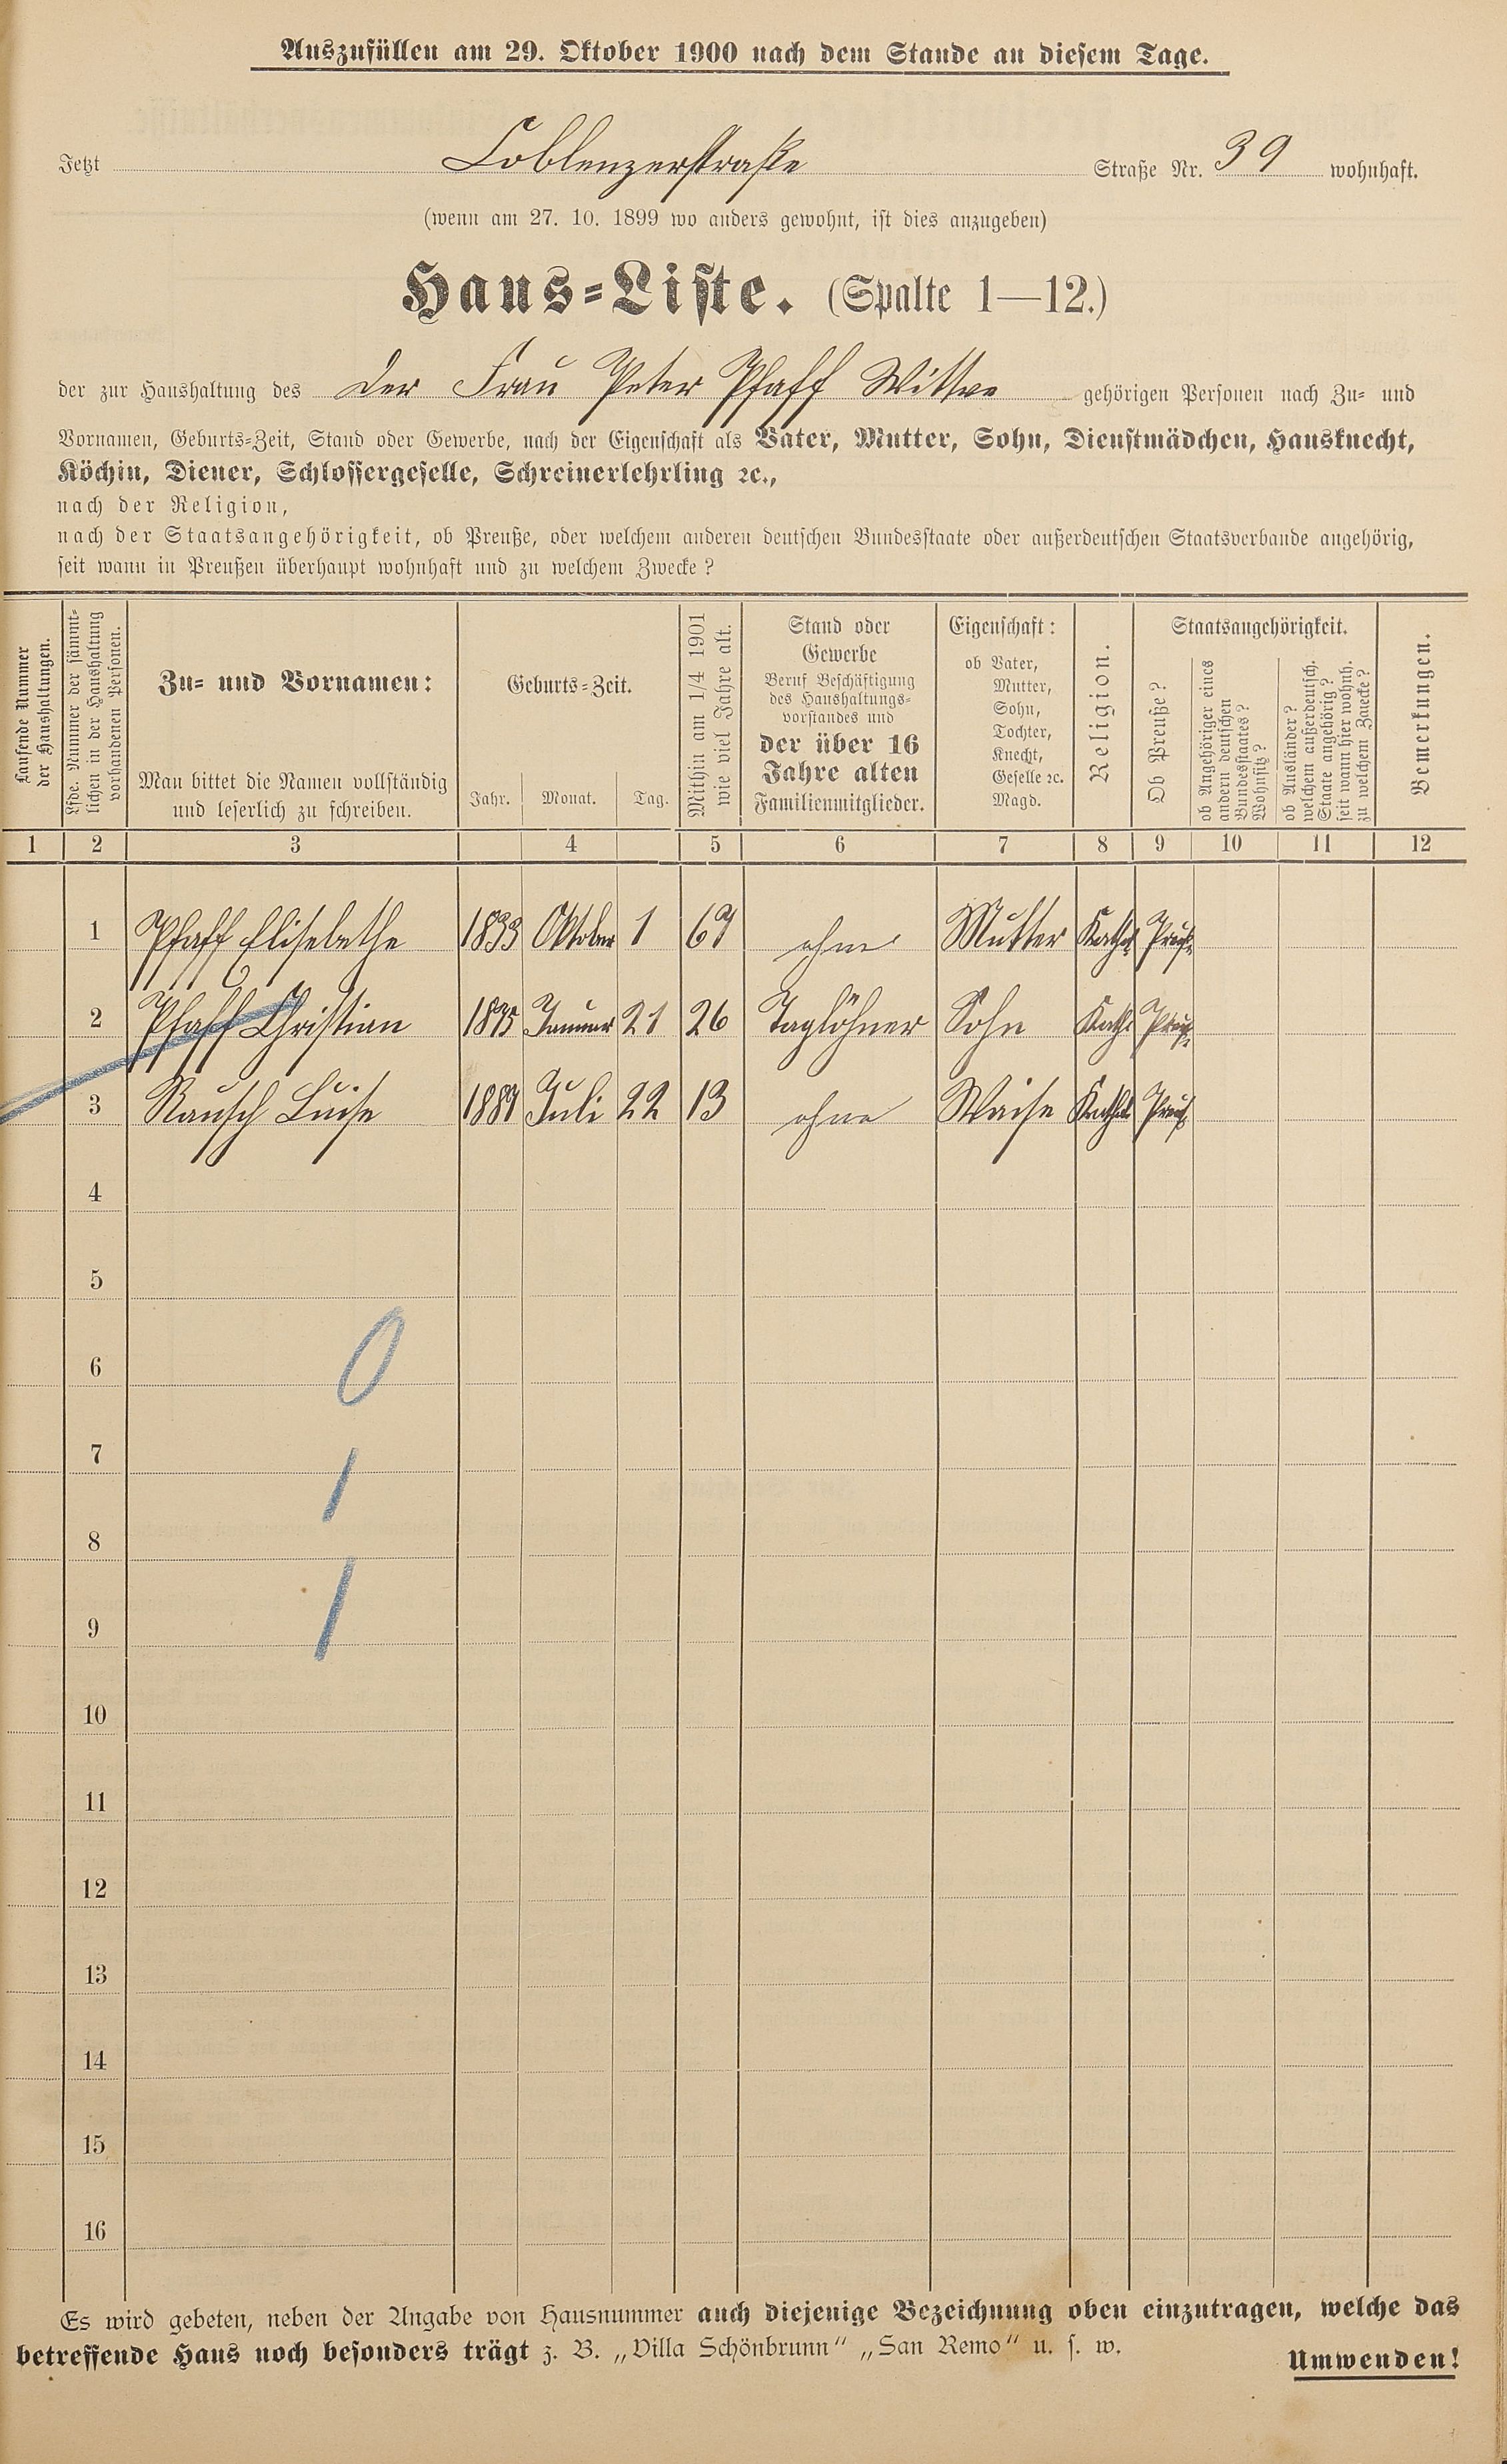 Auszufüllen am 29. Oktober 1900 nach dem Stande an diesem Tage.
Jetzt Coblenzerstraße Straße Nr. 39 wohnhaft.
(wenn am 27. 10. 1899 wo anders gewohnt, ist dies anzugeben)
Haus-Liste. (Spalte 1—12.)
der zur Haushaltung des Der Frau Peter Pfaff Wittwe gehörigen Personen nach Zu- und
Vornamen, Geburts-Zeit, Stand oder Gewerbe, nach der Eigenschaft als Vater, Mutter, Sohn, Dienstmädchen, Hausknecht,
Köchin, Diener, Schlossergeselle, Schreinerlehrling ꝛc.,
nach der Religion,
nach der Staatsangehörigkeit, ob Preuße, oder welchem anderen deutschen Bundesstaate oder außerdeutschen Staatsverbande angehörig,
seit wann in Preußen überhaupt wohnhaft und zu welchem Zwecke?
Laufende Nummer
der Haushaltungen.
Lfde. Nummer der sämmt-
lichen in der Haushaltung
vorhandenen Personen.
Zu- und Vornamen:
Man bittet die Namen vollständig
und leserlich zu schreiben.
Geburts-Zeit.
Jahr. Monat. Tag.
Mithin am 1/4 1901
wie viel Jahre alt.
Stand oder
Gewerbe
Beruf Beschäftigung
des Haushaltungs-
vorstandes und
der über 16
Jahre alten
Familienmitglieder.
Eigenschaft:
ob Vater,
Mutter,
Sohn,
Tochter,
Knecht,
Geselle ꝛc.
Magd.
Religion.
Staatsangehörigkeit.
Ob Preuße?
ob Angehöriger eines
andern deutschen
Bundesstaates?
Wohnsitz?
ob Ausländer?
welchem außerdeutsch.
Staate angehörig?
seit wann hier wohnh.
zu welchem Zwecke?
Bemerkungen.
1 2 3 4 5 6 7 8 9 10 11 12
1 Pfaff Elisebethe 1833 Oktober 1 67 ohne Mutter Kathol Preuße
2 Pfaff Christian 1875 Januar 21 26 Taglöhner Sohn Kath. Preuß.
3 Rausch Luise 1887 Juli 22 13 ohne Waise Kathol Preuß.
4
5
6
0
7
1
8
1
9
10
11
12
13
14
15
16
Es wird gebeten, neben der Angabe von Hausnummer auch diejenige Bezeichnung oben einzutragen, welche das
betreffende Haus noch besonders trägt z. B. „Villa Schönbrunn“ „San Remo“ u. s. w.
Umwenden!